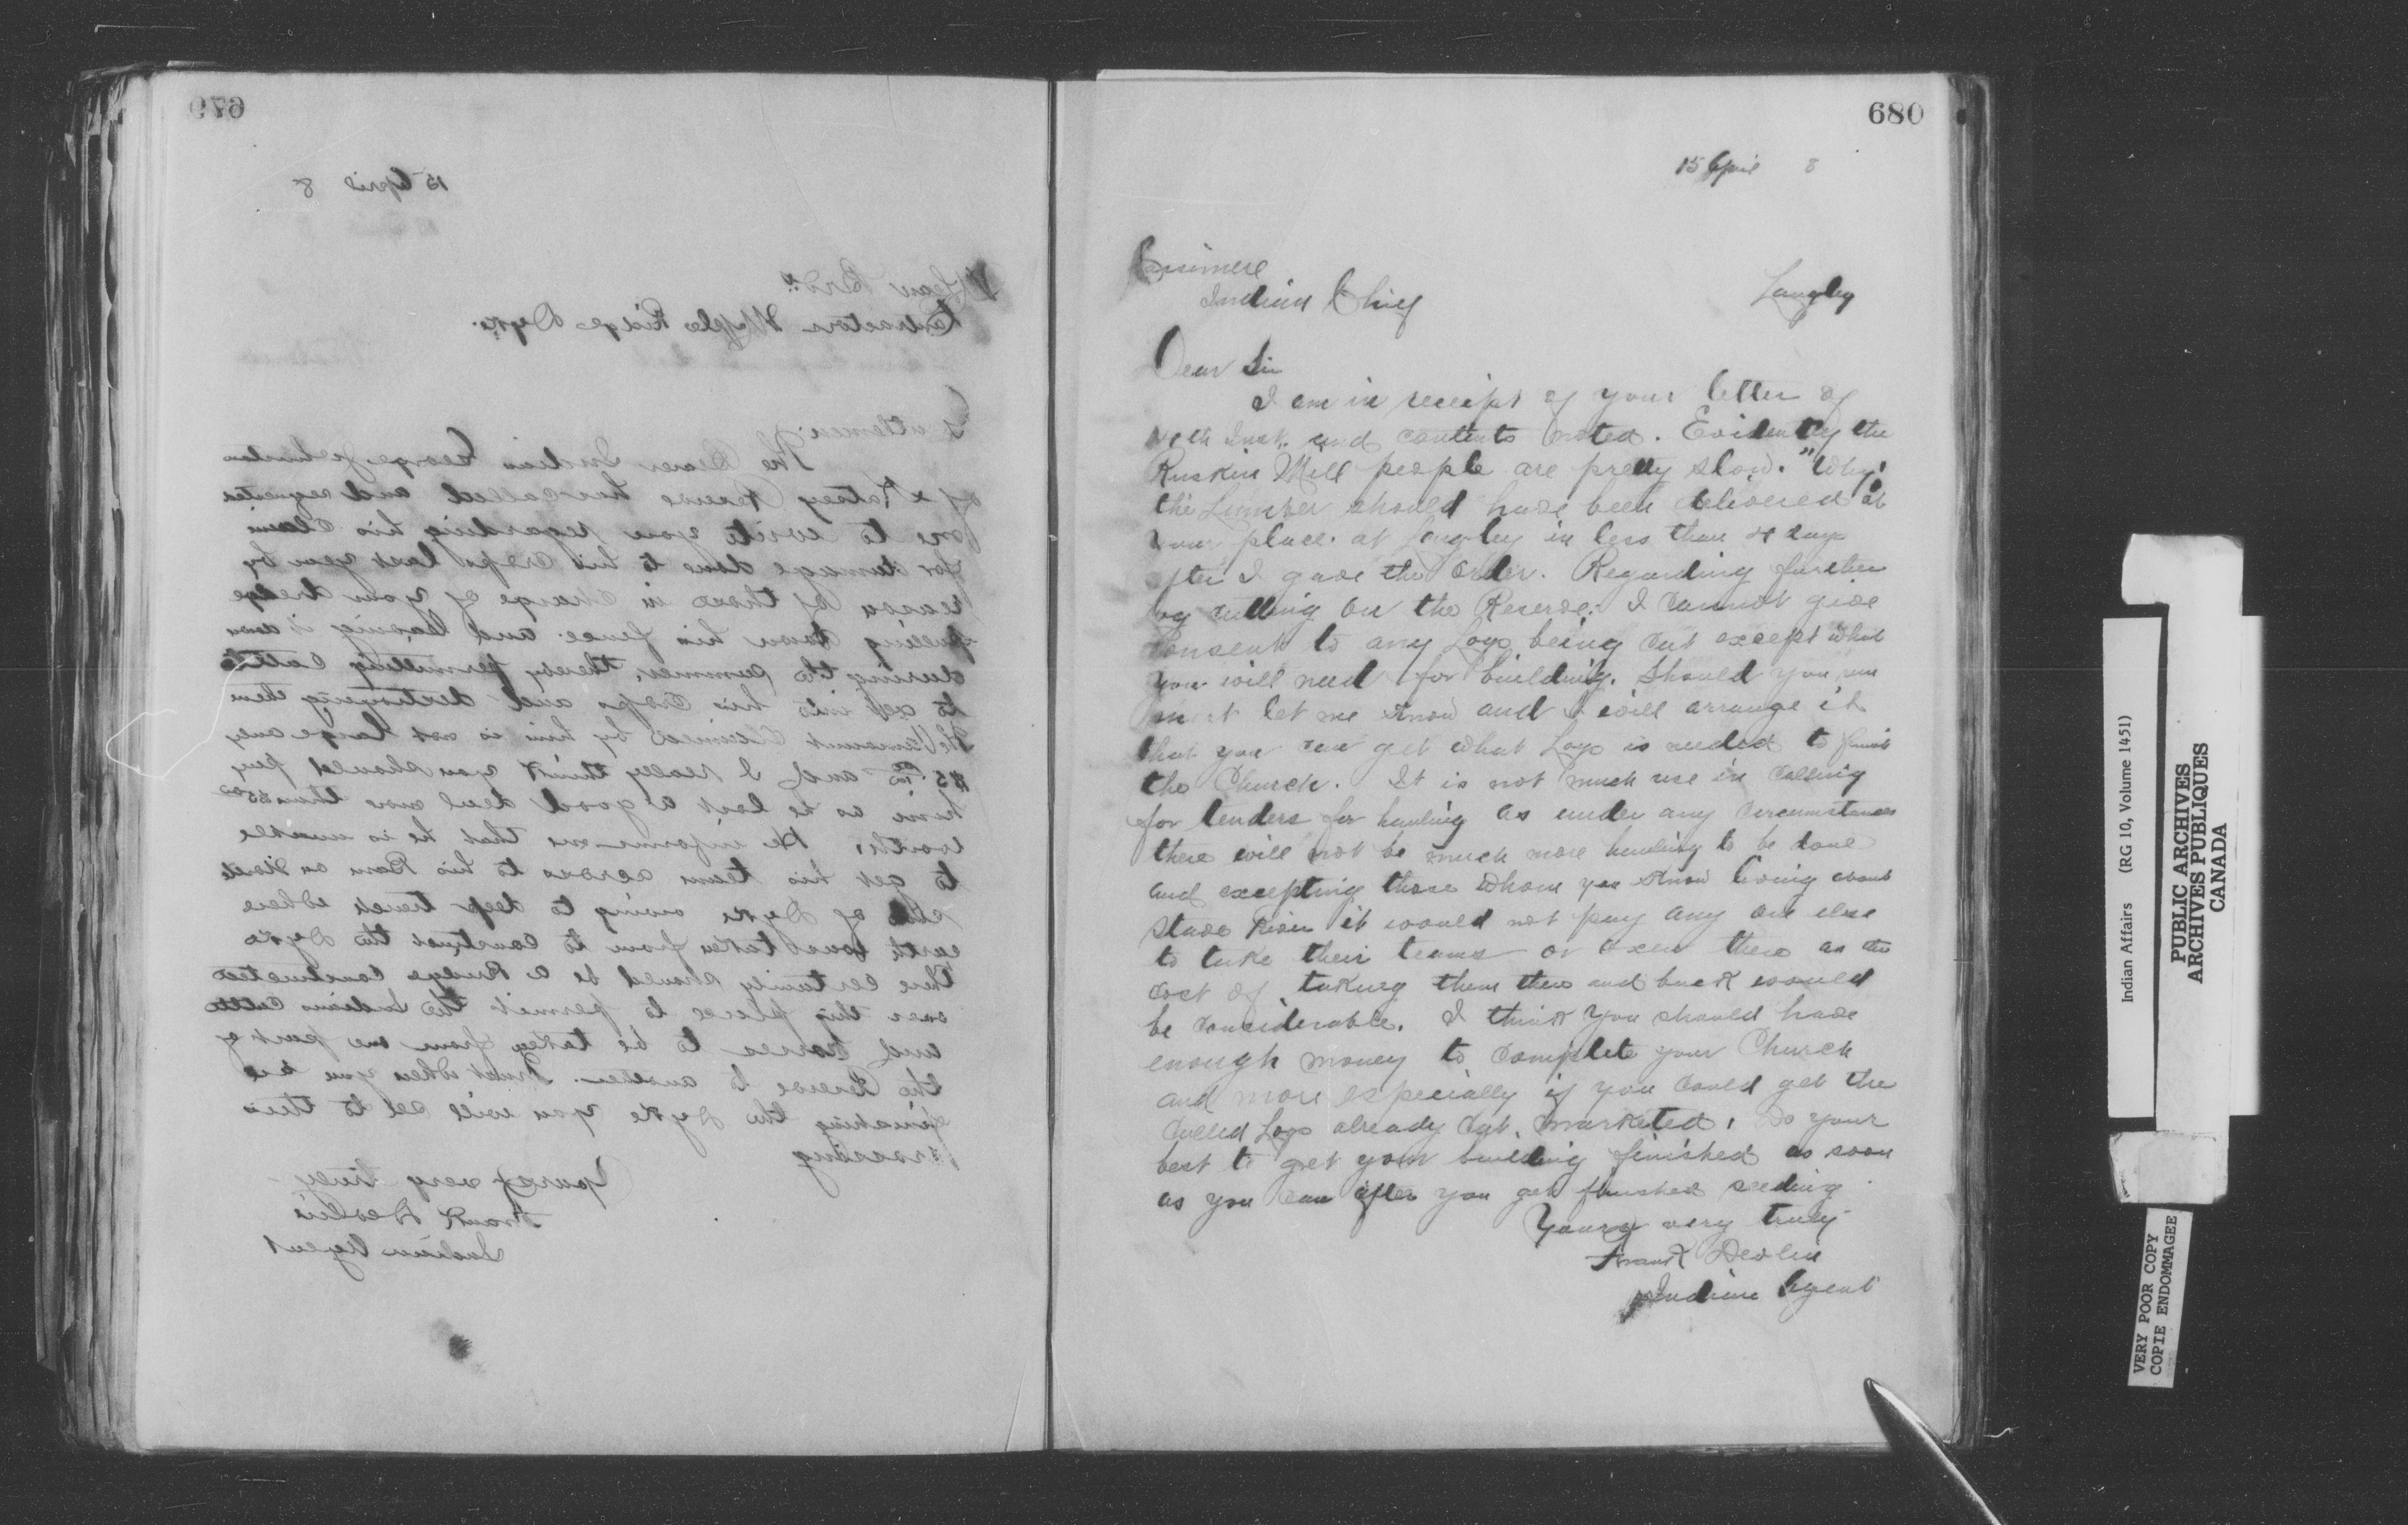 679
15 April 8
McLean Bros.
Contractors Maple Ridge Dyke.
Gentlemen;
The Bearer Indian George Johnston
of Katsey Reserve has called and requested
me to write you regarding his claim
for damage done to his crops last year by
reason of those in charge of your dredge
pulling down his fence and leaving it down
during the summer, thereby permitting Cattle
to get into his crops and destroying them
The amount claimed by him is not large only
and I really think you should pay
him as he lost a good deal more than
worth. He informs me that he is unable
to get his team across to his Barn on North
side of Dyke owing to deep trench where
earth was taken from to construct the Dyke
there certainly should be a Bridge constructed
over this place to permit the Indians Cattle
and horses to be taken from one part of
the Reserve to another. Trust when you are
finishing the Dyke you will see to this
crossing
Yours very truly
Frank Devlin
Indian Agent
680
15 April 8
Casimere
Indian Chief Langley
Dear Sir
I am in receipt of your letter of
Inst. and contents noted. Evidently the
Ruskin Mill people are pretty slow. "Why"
the Lumber should have been delivered at
your place at Langley in less than 4 days
after I gave the order. Regarding further
log cutting on the Reserve. I cannot give
consent to any Logs being cut except what
you will need for building. Should you run
short let me know and I will arrange it
that you can get what Logs is needed to finish
the Church. It is not much use in calling
for tenders for hauling as under any circumstances
there will not be much more hauling to be done
and excepting those whom you know living about
Stave River it would not pay any one else
to take their teams or oxen there as the
cost of taking them there and back would
be considerable. I think you should have
enough money to complete your Church
and more especially if you could get the
culled Logs already cut, marketed. Do your
best to get your building finished as soon
as you can after you get finished seeding.
Yours very truly
Frank Devlin
Indian Agent
Indian Affairs (RG 10, Volume 1451)
PUBLIC ARCHIVES
ARCHIVES PUBLIQUES
CANADA
VERY POOR COPY
COPIE ENDOMMAGEE